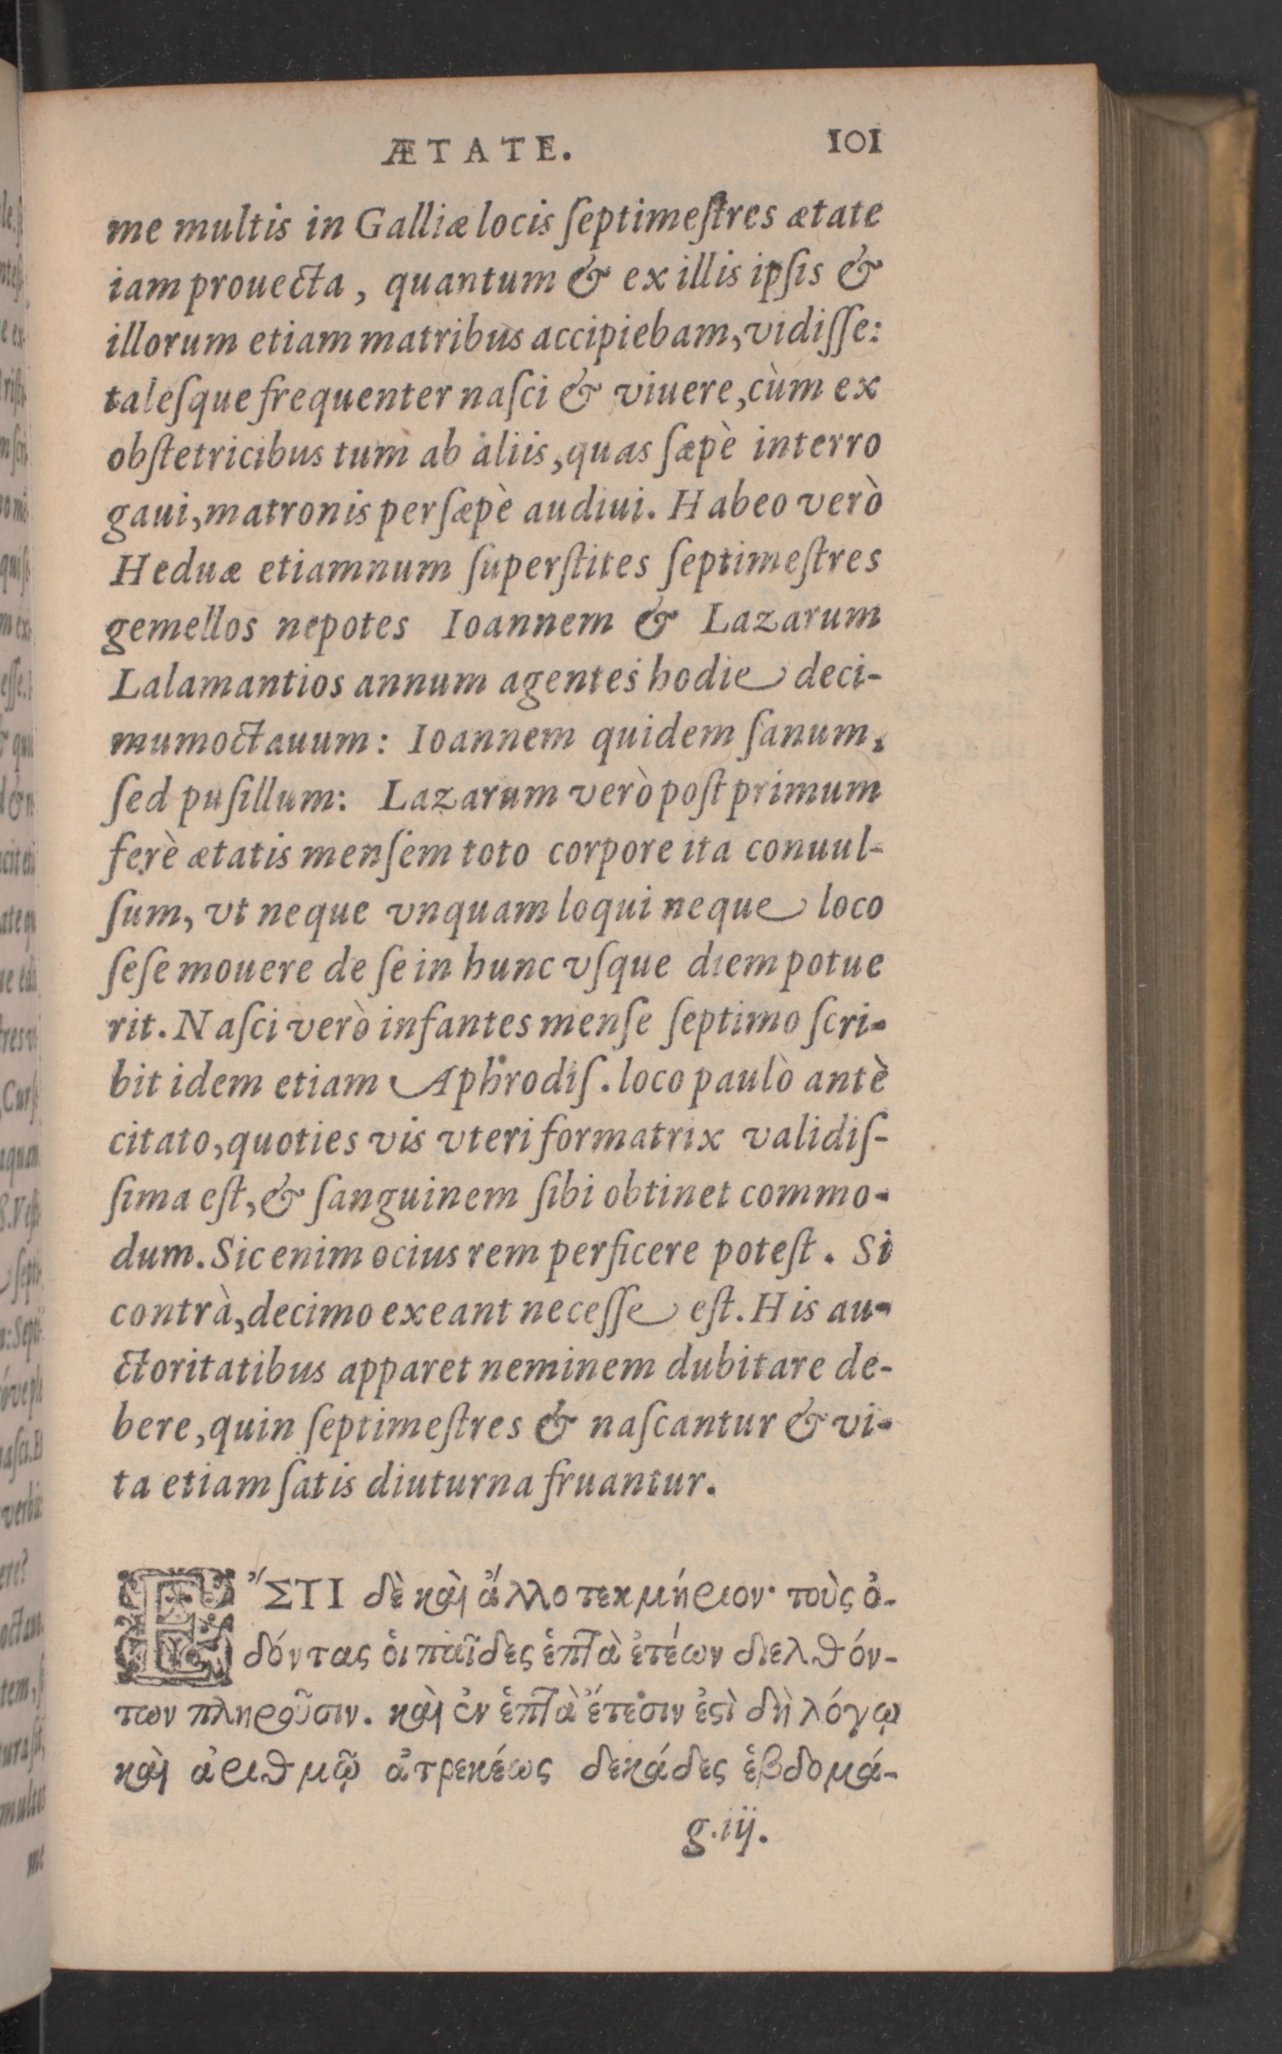 ÆTATE. 101
me multis in Galliæ locis ſeptimeſtres ætate
iam prouecta, quantum & ex illis ipſis &
illorum etiam matribus accipiebam, vidiſſe:
taleſque frequenter naſci & viuere, cùm ex
obſtetricibus tum ab aliis, quas ſæpè interro
gaui, matronis perſæpè audiui. Habeo verò
Heduæ etiamnum ſuperſtites ſeptimeſtres
gemellos nepotes Ioannem & Lazarum
Lalamantios annum agentes hodie deci-
mumoctauum: Ioannem quidem ſanum,
ſed puſillum: Lazarum verò poſt primum
ferè ætatis menſem toto corpore ita conuul-
ſum, vt neque vnquam loqui neque loco
ſeſe mouere de ſe in hunc vſque diem potue
rit. Naſci verò infantes menſe ſeptimo ſcri-
bit idem etiam Aphrodiſ. loco paulò antè
citato, quoties vis vteri formatrix validiſ-
ſima eſt, & ſanguinem ſibi obtinet commo-
dum. Sic enim ocius rem perficere poteſt. Si
contrà, decimo exeant neceſſe eſt. His au-
ctoritatibus apparet neminem dubitare de-
bere, quin ſeptimeſtres & naſcantur & vi-
ta etiam ſatis diuturna fruantur.
Ἔ ΣΤΙ δὲ καὶ ἄλλο τεκμήριον· τοὺς ὀ-
δόντας οἱ παῖδες ἑπτὰ ἐτέων διελθόν-
των πληροῦσιν. καὶ ἐν ἑπτὰ ἔτεσιν ἐςὶ δὴ λόγῳ
καὶ ἀριθμῷ ἀτρεκέως δεκάδες ἑβδομά-
g.iij.